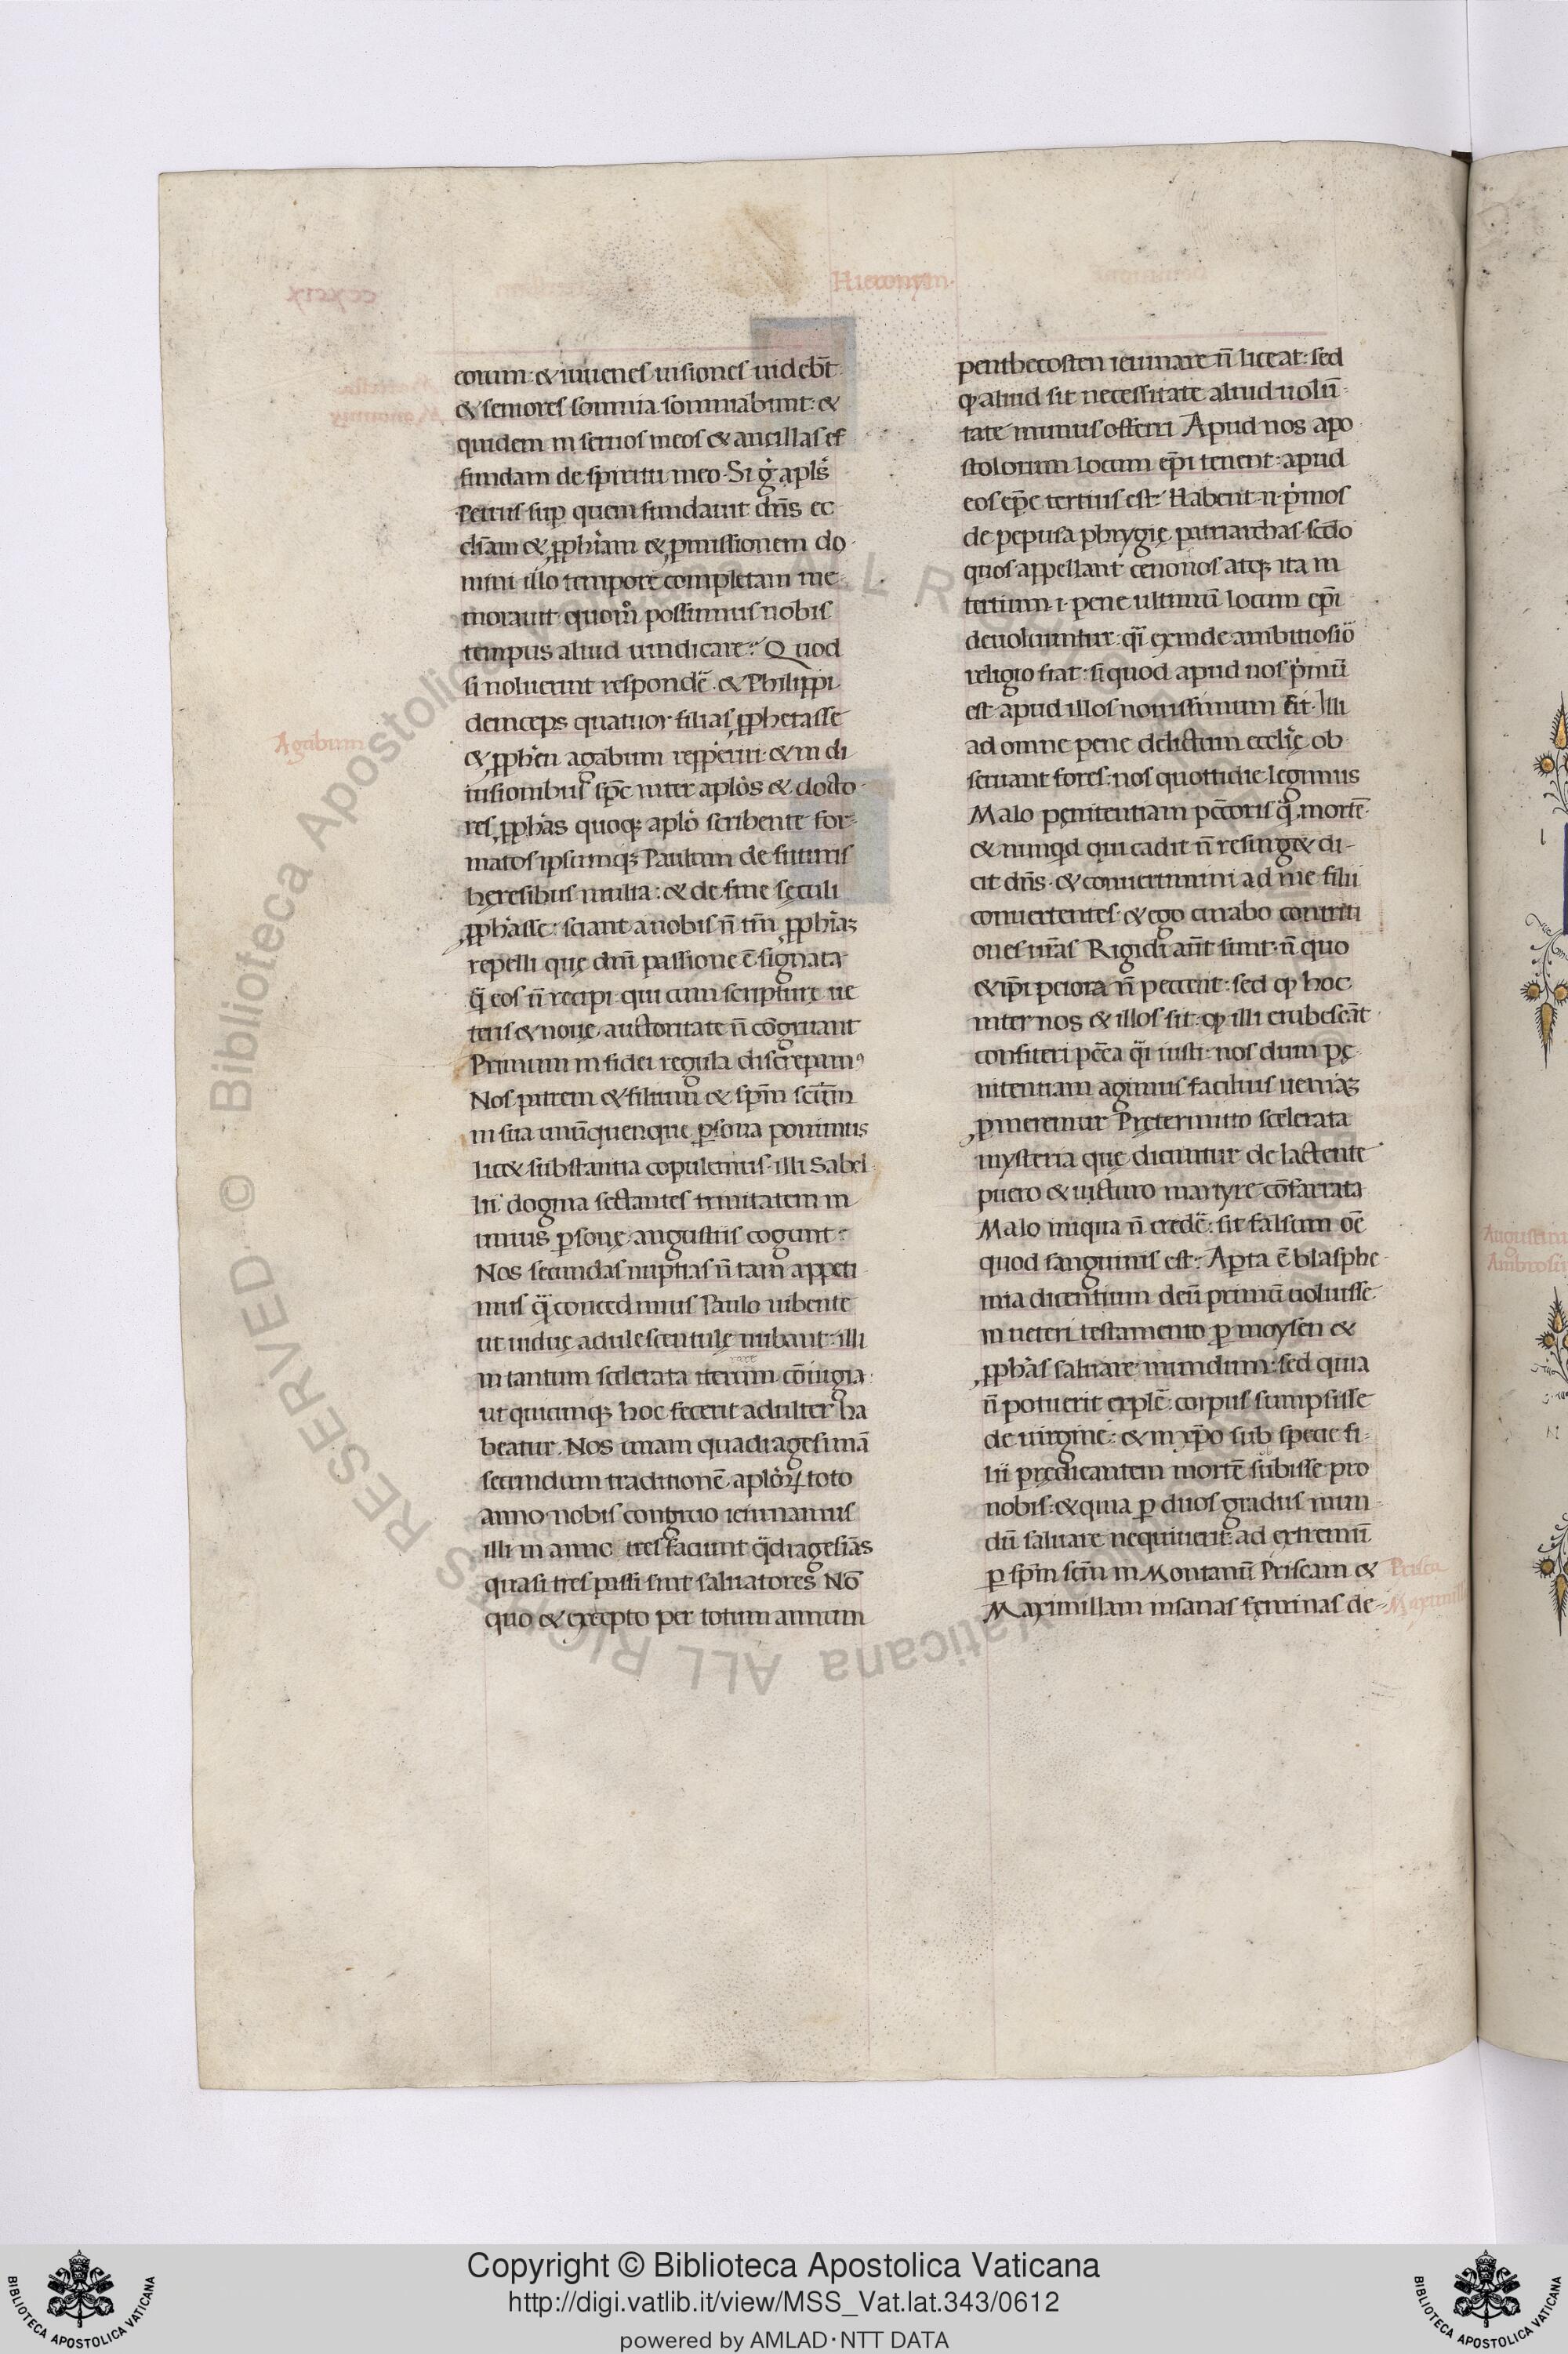 Hieronym.
eorum: & iuuenes uisiones uideb̄t
& seniores somnia somniabunt: &
quidem in seruos meos & ancillas ef
fundam de spiritu meo. Si g̊ apl̄s
Petrus sup quem fundauit dn̄s ec
cl̄iam & ꝓph̄iam & ꝓmissionem do
mini illo tempore completam me
morauit quom̊ possumus nobis
tempus aliud uindicare? Quod
si noluerint respondē. & Philippi
deinceps quatuor filias ꝓphetasse
& ꝓph̄en agabum repperiri. & in di
Agabum
iusionibus sp̄c inter aplōs & docto
res ꝓph̄as quoq; aplō scribente for
matos ipsumq; Paulum de futuris
heręsibus multa: & de fine sęculi
ꝓph̄asse: sciant a nobis n̄ tm̄ ꝓph̄iaꝫ
repelli quę dn̄i passione ē signata
q̄ eos n̄ recipi: qui cum scripturę ue
teris & nouę auctoritate n̄ cōgruant
Primum in fidei regula discrepamꝰ
Nos patrem & filium & sp̄m sc̄tm̄
in sua unūquenque ꝑsona ponimus
lic& substantia copulemus. illi Sabel
lii dogma sectantes trinitatem in
unius ꝑsonę angustiis cogunt:
Nos secundas nuptias n̄ tam appeti
mus q̄ concedimus Paulo iubente
ut uiduę adulescentulę nubant: illi
in tantum scelerata iterum cōiugia
ut quicunq; hoc fecerit adulter ha
beatur. Nos unam quadragesimā
secundum traditionē aplōꝝ toto
anno nobis congruo ieiunamus
illi in anno tres faciunt q̄dragesiās
quasi tres passi sint saluatores Nō
quo & excepto per totum annum
penthecosten ieiunare n̄ liceat: sed
ꝙ aliud sit necessitate aliud uolū
tate munus offerri Apud nos apo
stolorum locum ep̄i tenent: apud
eos ep̄c tertius est. Habent n. p̄mos
de pepusa phrygię patriarchas. sc̄do
quos appellant cenonos atq; ita in
tertium. i. pene ultimū locum ep̄i
deuoluuntur: q̄i exinde ambitiosiō
religio fiat: si quod apud nos p̄mū
est apud illos nouissimum sit. Illi
ad omne pene delictum eccl̄ię ob
seruant fores. nos quottidie legimus
Malo pęnitentiam pc̄toris q̄ mortē
& nunqd qui cadit n̄ resurg& di
cit dn̄s. & conuertimini ad me filii
conuertentes. & ego curabo contriti
ones ur̄as Rigidi aūt sunt: n̄ quo
& ip̄i peiora n̄ peccent: sed ꝙ hoc
inter nos & illos sit: ꝙ illi erubescāt
confiteri pc̄ca q̄i iusti: nos dum pę
nitentiam agimus facilius ueniaꝫ
ꝓmeremur Prętermitto scelerata
mysteria quę dicuntur de lactente
puero & uicturo martyre cōfarrata
Malo iniqua n̄ credē: sit falsum oē
quod sanguinis est: Aꝑta ē blasphe
mia dicentium deū primū uoluisse
in ueteri testamento ꝑ moysen &
ꝓph̄as saluare mundum: sed quia
n̄ potuerit explē: corpus sumpsisse
de uirgine: & in xp̄o sub specie fi
lii prędicantem mortē subisse pro
nobis. & quia ꝑ duos gradus mun
dū saluare nequiuerit: ad extremū
ꝑ sp̄m sc̄m in Montanū Priscam &
Maximillam insanas fęminas de
Prisca
Maximill
Augustin
Ambrosi
Copyright © Biblioteca Apostolica Vaticana
http://digi.vatlib.it/view/MSS_Vat.lat.343/0612
powered by AMLAD·NTT DATA
BIBLIOTECA APOSTOLICA VATICANA
BIBLIOTECA APOSTOLICA VATICANA
© Biblioteca Apostolica Vaticana ALL RIGHTS RESERVED